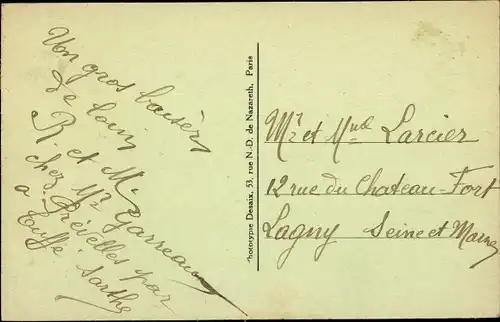 Un gros baiser
de loin
R. et M. Garreau
chez Mr
Prévelles par
a Tuffé Sarthe
Phototypie Desaix, 53, rue N.-D. de Nazareth, Paris
Mr et Mme Larcier
12 rue du Chateau-Fort
Lagny Seine et Marne